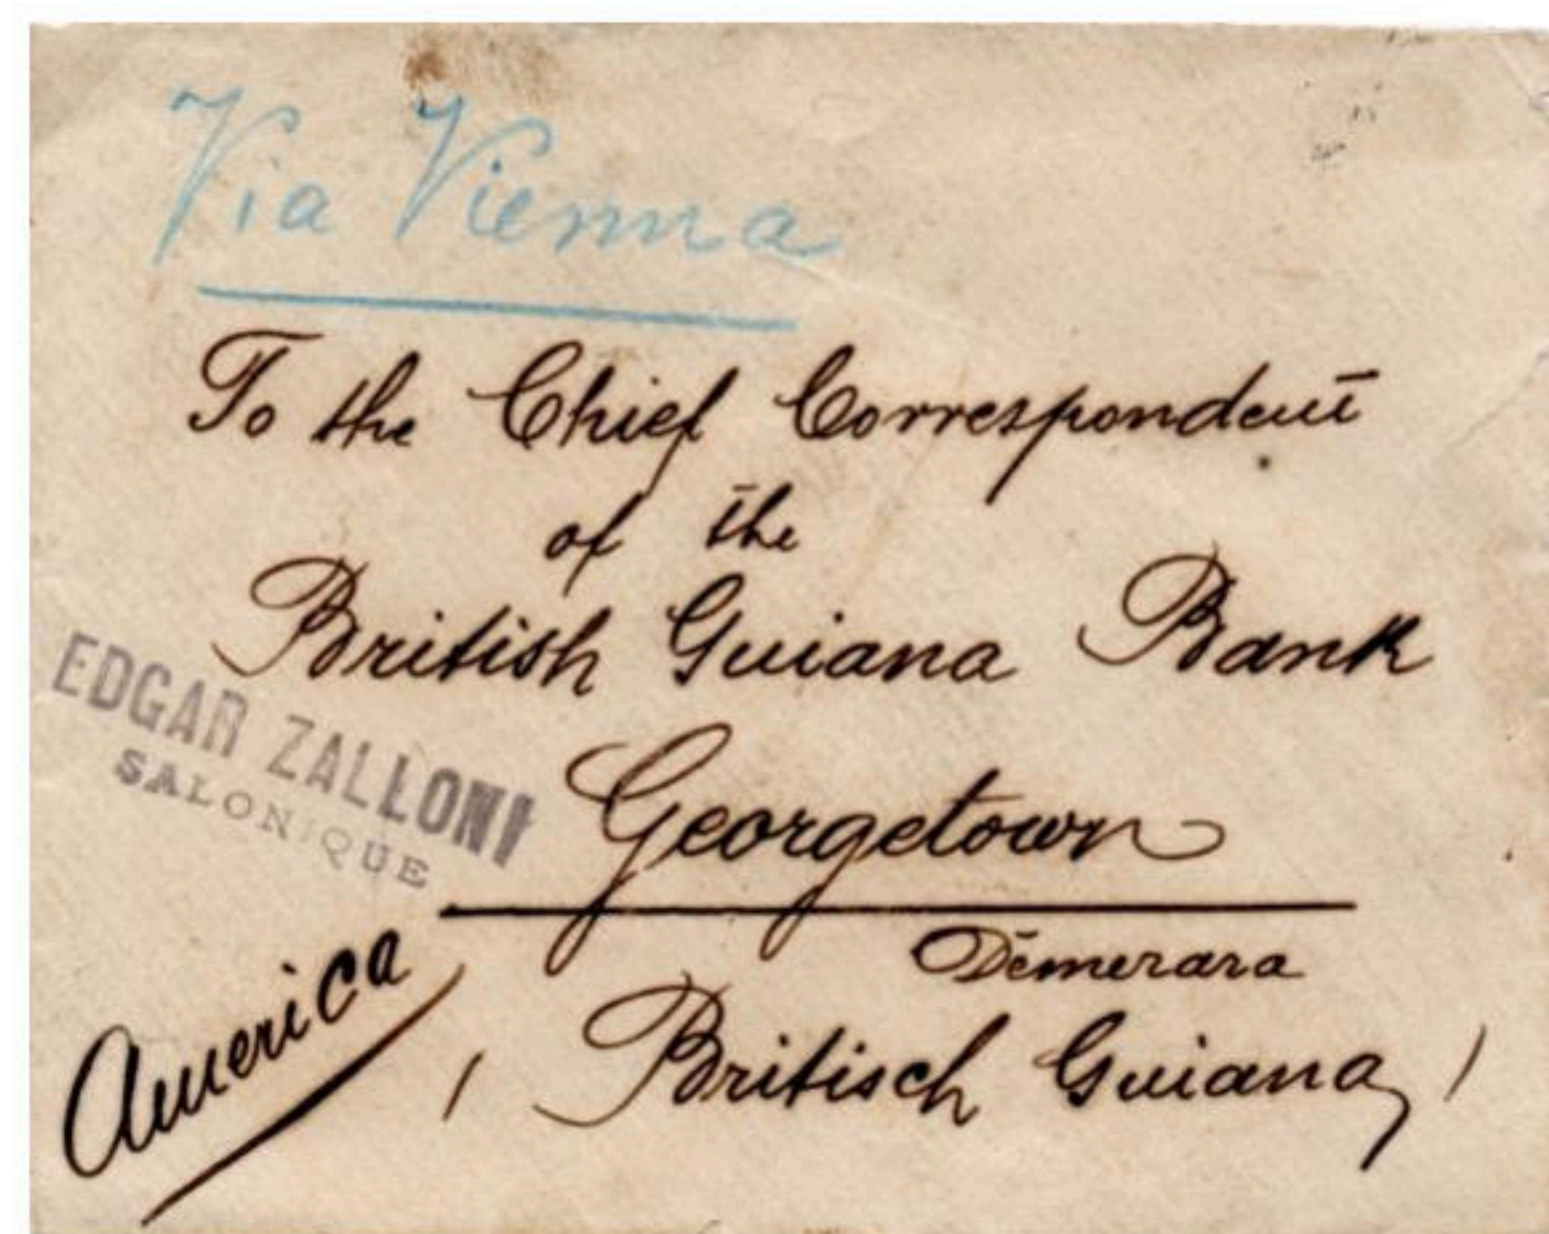 Via Vienna
To the Chief Correspondent
of the
British Guiana Bank
EDGAR ZALLONI
SALONIQUE
Georgetown
Demerara
America
(Britisch Guiana)